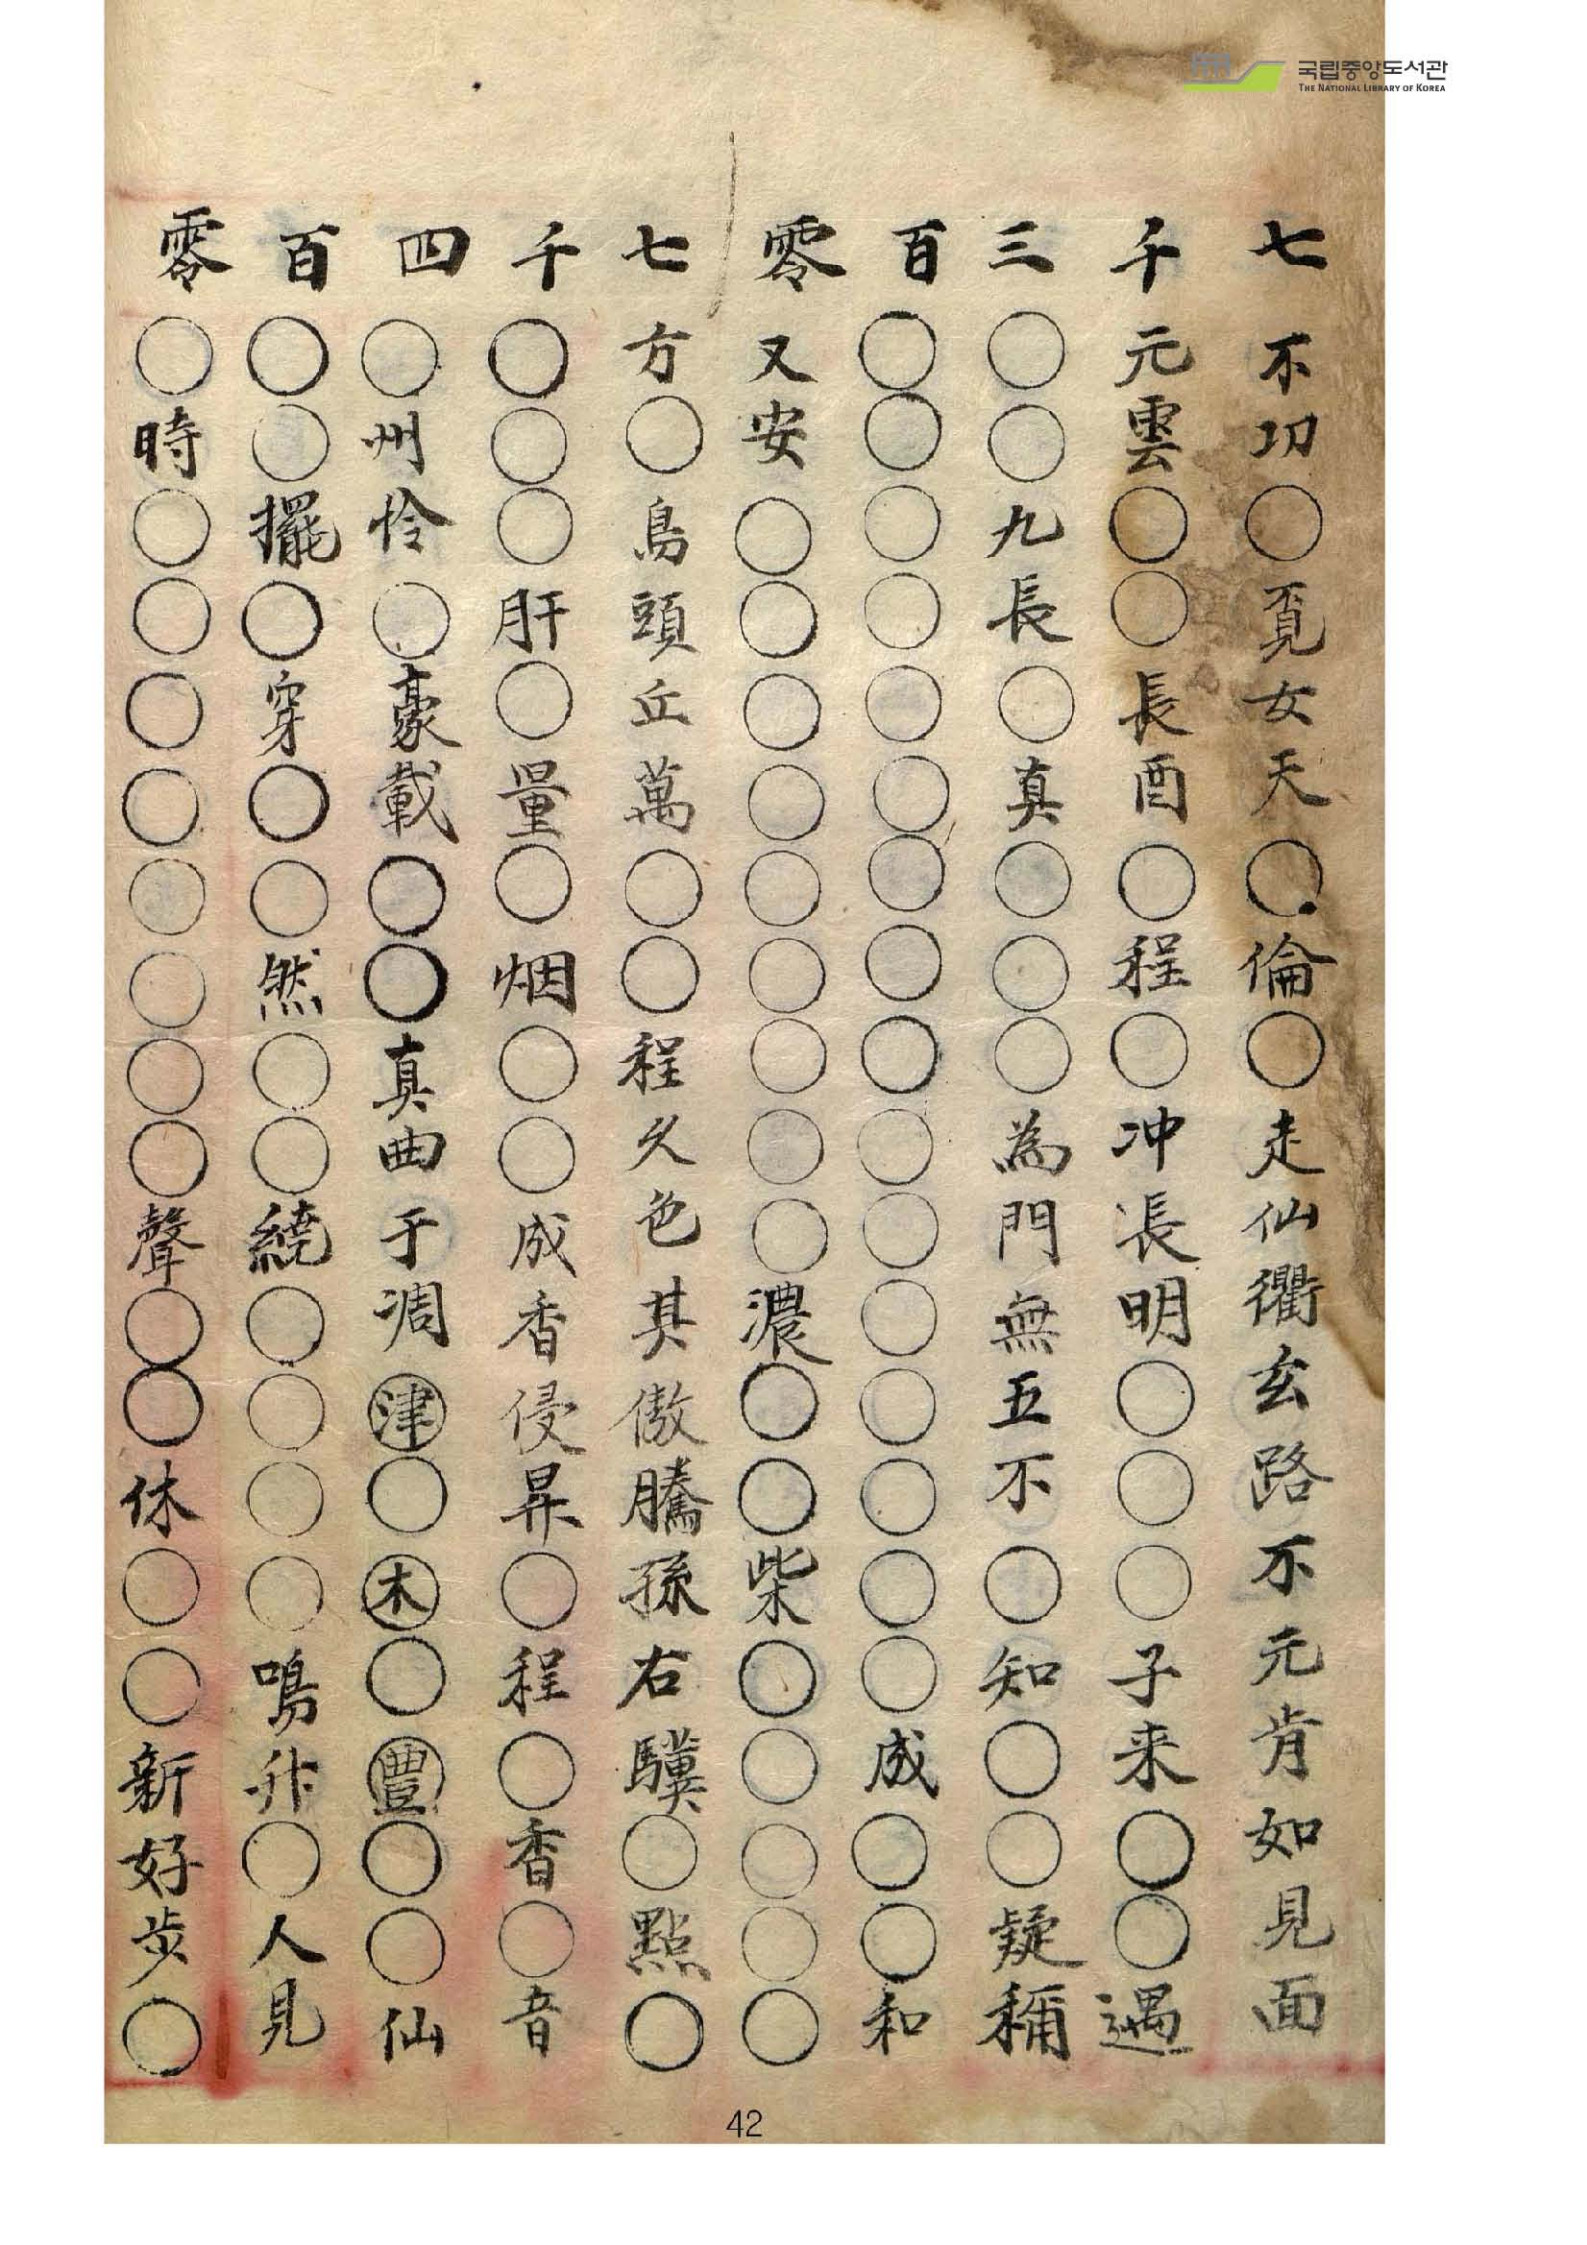 국립중앙도서관
THE NATIONAL LIBRARY OF KOREA
七不㓛○覔女天○倫○走仙衢玄路不元肯如見面
千元雲○○長酉○程○冲長明○○○子来○○遇
三○○九長○真○○○為門無五不○知○○疑稱
百○○○○○○○○○○○○○○○○成○○和
零又安○○○○○○○○○濃○○柴○○○○○
七方○鳥頭丘萬○○程久色其傲騰孫右驥○點○
千○○○肝○量○烟○○成香侵昇○程○香○音
四○州怜○豪載○○真曲于凋津○木○豊○○仙
百○○擺○穿○○然○○繞○○○○鳴升○人見
零○時○○○○○○○○聲○○休○○新好步○
42